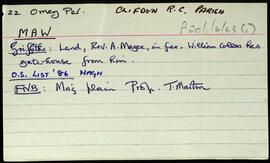 22 Omey Par. CLIFDEN R.C. PARISH
P120/1/6/63 (1)
MAW
Griffiths: Land, Rev. A. Magee, in fee. William Collers has
Gate-house from him.
O.S. LIST '86 MAGH
FNB: Maj plain Prop. T. Martin